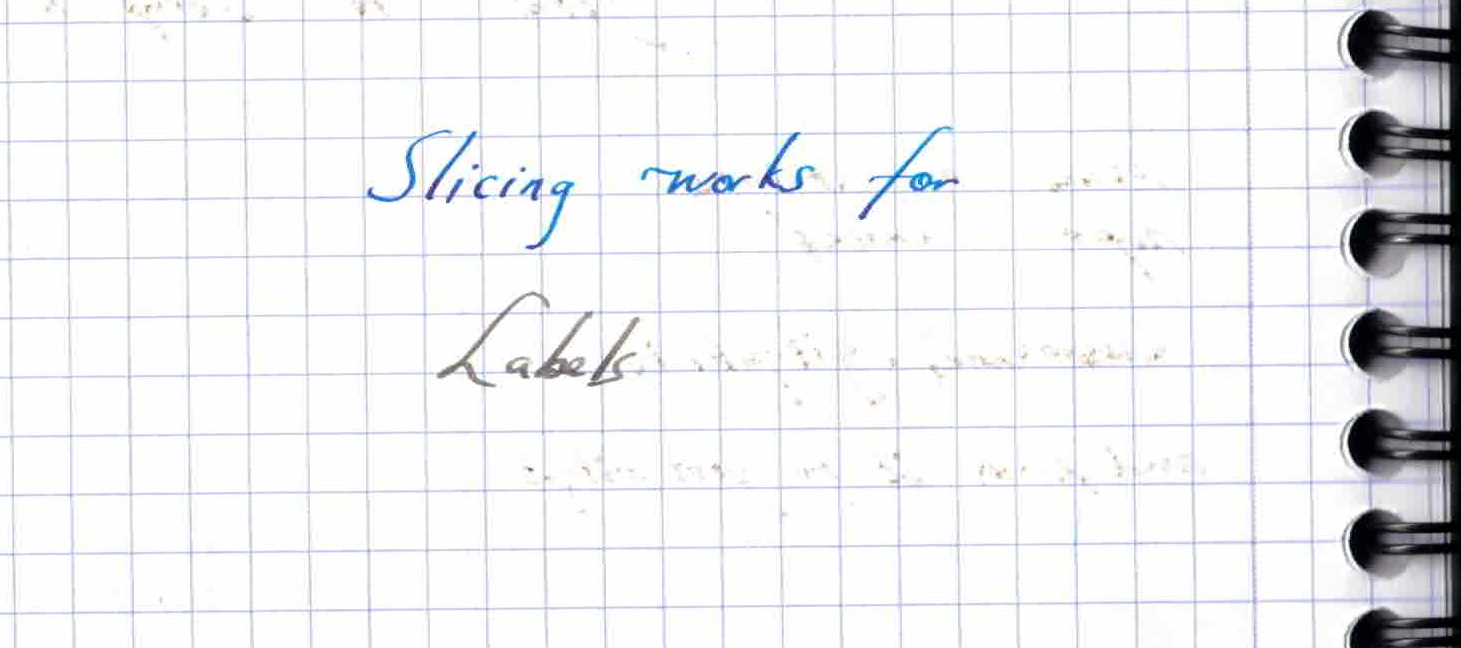 Slicing works for
Labels